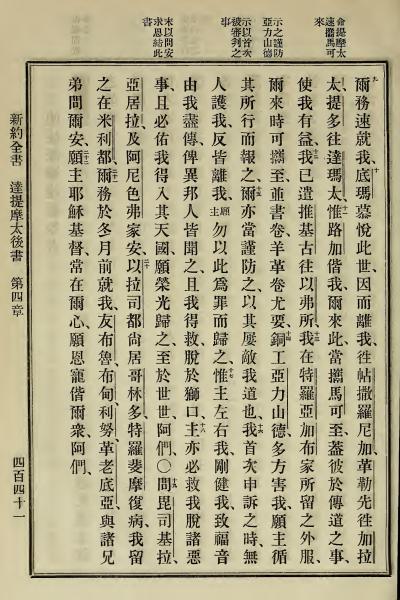 會提摩太
速攜馬可
來
示之謹防
亞力山德
示以首次
被審判之
事
末以問安
求恩結此
書
九爾務速就我、十底瑪慕悅此世、因而離我、徃帖撒羅尼加、革勒先徃加拉
太、提多往達瑪太、十一惟路加偕我、爾來此當攜馬可至、蓋彼於傳道之事、
使我有益、十二我已遣推基古往以弗所、十三我在特羅亞加布家所留之外服、
爾來時可攜至、並書卷、羊革卷尤要、十四銅工亞力山德、多方害我、願主循
其所行而報之、十五爾亦當謹防之、以其屢敵我道也、十六我首次申訴之時、無
人護我、反皆離我、願主勿以此為罪而歸之、十七惟主左右我、剛健我、致福音
由我盡傳、俾異邦人皆聞之、且我得救、脫於獅口、十八主亦必救我脫諸惡
事、且必佑我得入其天國、願榮光歸之、至於世世、阿們、○十九問毘司基拉、
亞居拉、及阿尼色弗家安、二十以拉司都尚居哥林多、特羅斐摩復病、我留
之在米利都、二十一爾務於冬月前就我、友布魯、布甸、利努、革老底亞、與諸兄
弟問爾安、二十二願主耶穌基督、常在爾心、願恩寵偕爾眾、阿們、
新約全書 達提摩太後書 第四章 四百四十一